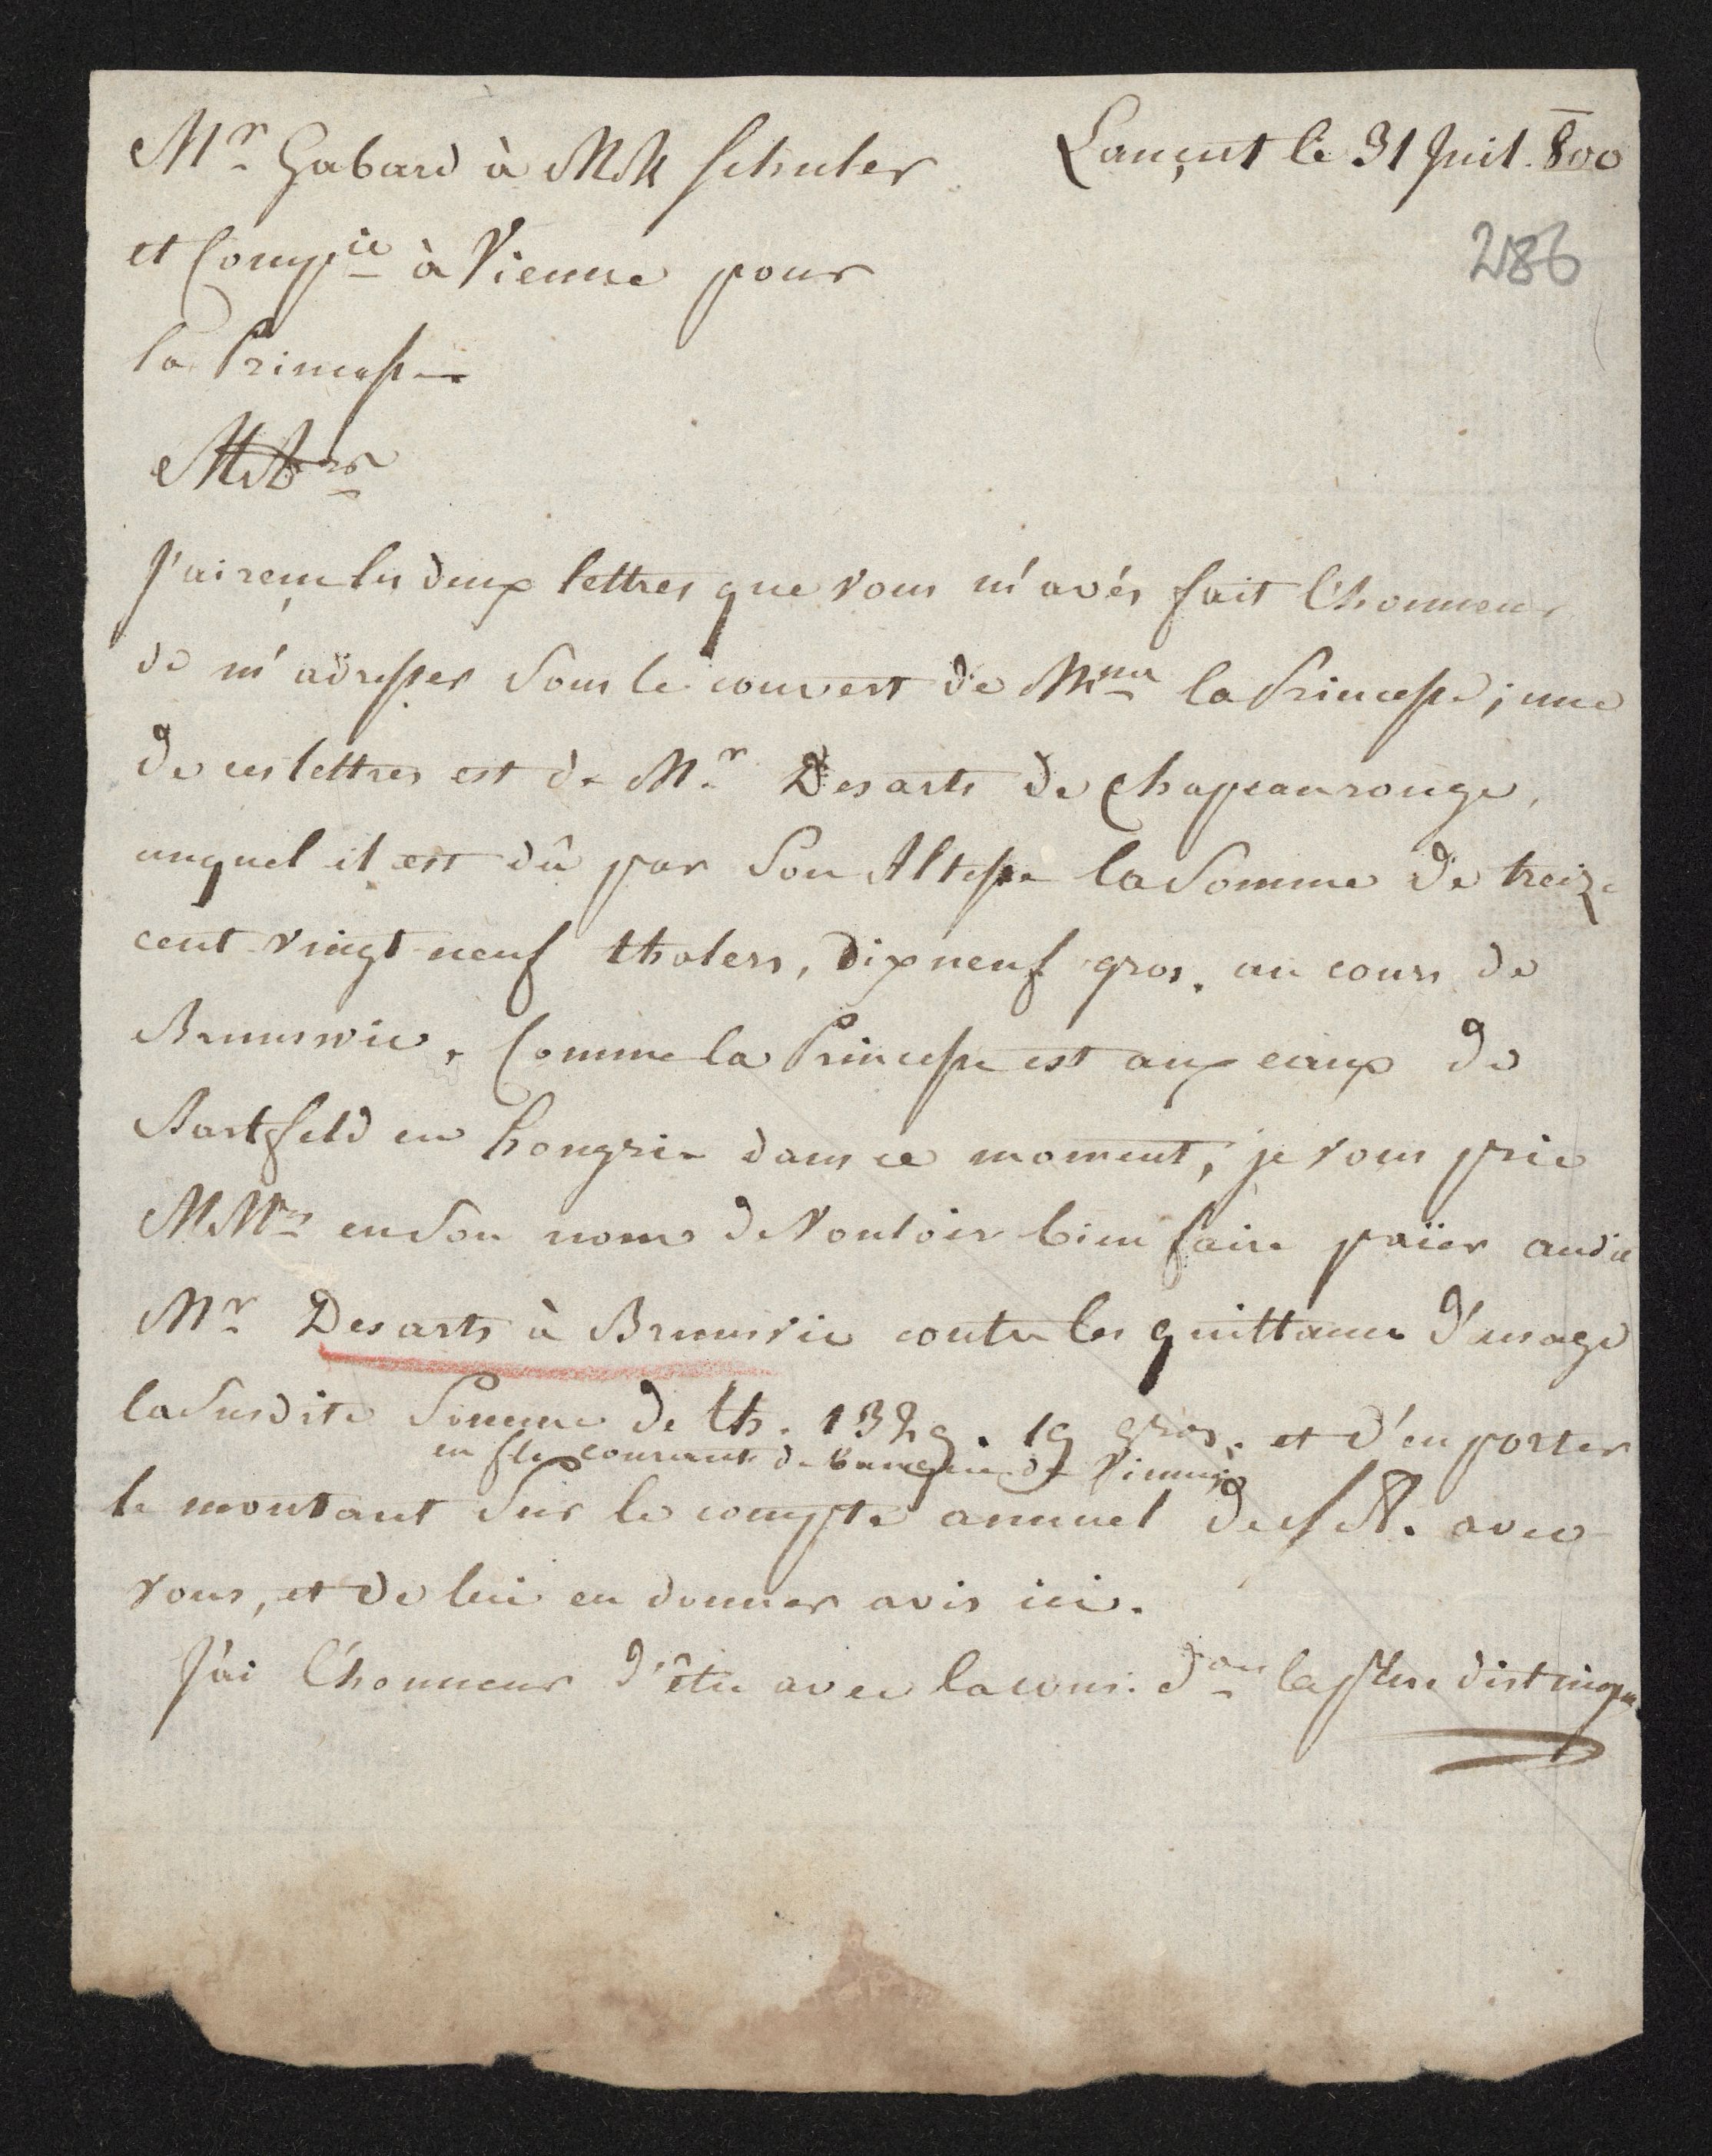 Mr Gabard à MM Schuler
Lançut le 31 Juil. 800
et Compie à Vienne pour
286
la Princesse
MMrs
J'ai reçu les deux lettres que vous m'avés fait l'honneur
de m'adresser Sous le couvert de Mme la Princesse; une
de ces lettres est de Mr. Desarts de Chapeaurouge,
auquel il est dû par Son Altesse la Somme de treize
cent vingt neuf thalers, dix neuf gros. au cours de
Brunswic. Comme la Princesse est aux eaux de
Bartfeld en hongrie dans ce moment, je vous prie
MMrs en Son nom de Vouloir bien faire païer audit
Mr Desarts à Brunsvic contre les quittances d'usage
la Susdite Somme de th. 1329. 19 gros. et d'en porter
en fls courant de banque de Vienne
le montant Sur le compte annuel de S A. avec
vous, et de lui en donner avis ici.
J'ai l'honneur d'être avec la cons. don la plus distingu